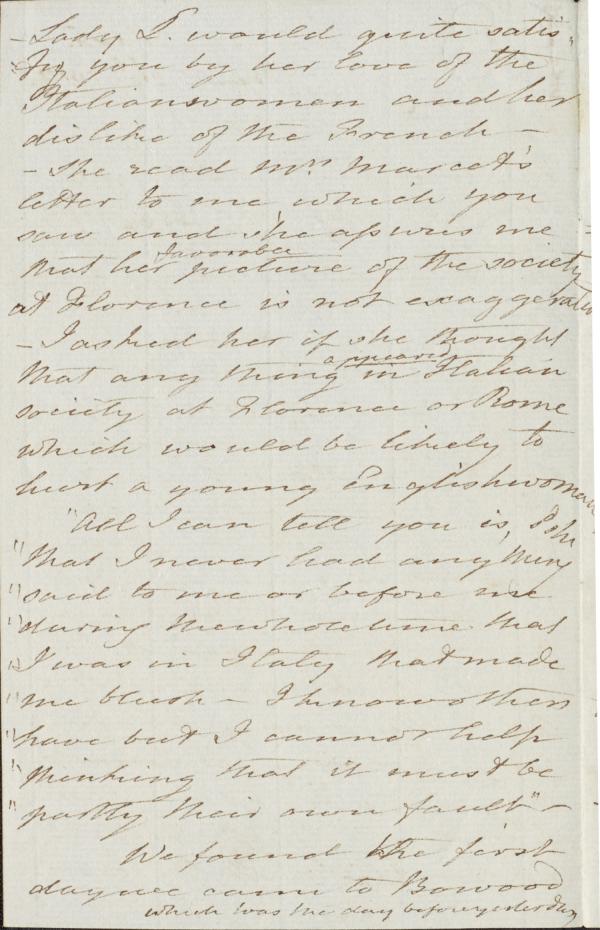 - Lady L. would quite satis-
fy you by her love of the
Italianwomen and her
dislike of the French -
- She read Mrs. Marcet's
letter to me which you
saw and she assures me
favorable
that her picture of the society
at Florence is not exaggerated
- I asked her if she thought
appeared
that any thing in Italian
society at Florence or Rome
which would be likely to
hurt a young Englishwoman
"All I can tell you is,
" that I never had anything
" said to me or before me
" during the whole time that
" I was in Italy that made
" me blush - I know others
" have but I cannot help
" thinking that it must be
" partly their own fault" -
We found the first
day we came to Bowood
which was the day before yesterday